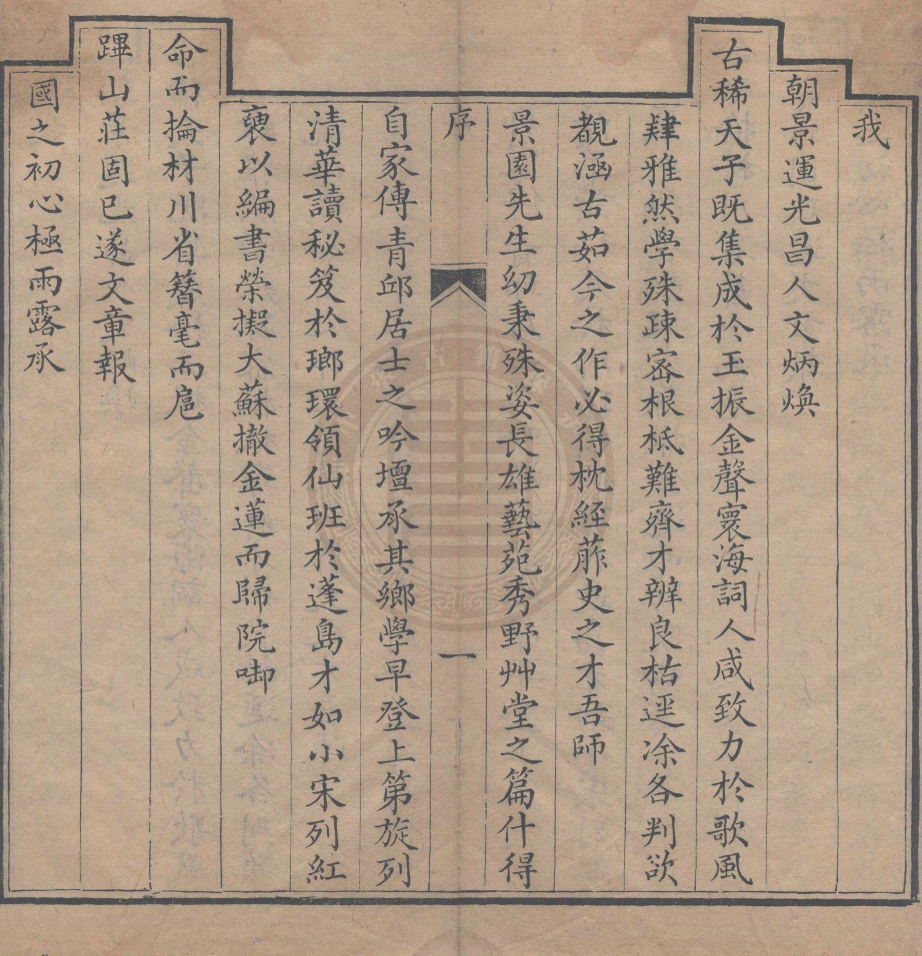 我
朝景運光昌人文炳煥
古稀天子既集成於玉振金聲寰海詞人咸致力於歌風
肄雅然學殊疎宻根柢難齊才辨良楛逕凃各判欲
覩涵古茹今之作必得枕經葄史之才吾師
景園先生幼秉殊姿長雄藝苑秀野艸堂之篇什得
序
一
自家傳青邱居士之吟壇承其鄉學早登上第旋列
清華讀秘笈於瑯環領仙班於蓬島才如小宋列紅
褏以編書榮擬大蘇撤金蓮而歸院啣
命而掄材川省簪毫而扈
蹕山莊固已遂文章報
國之初心極雨露承